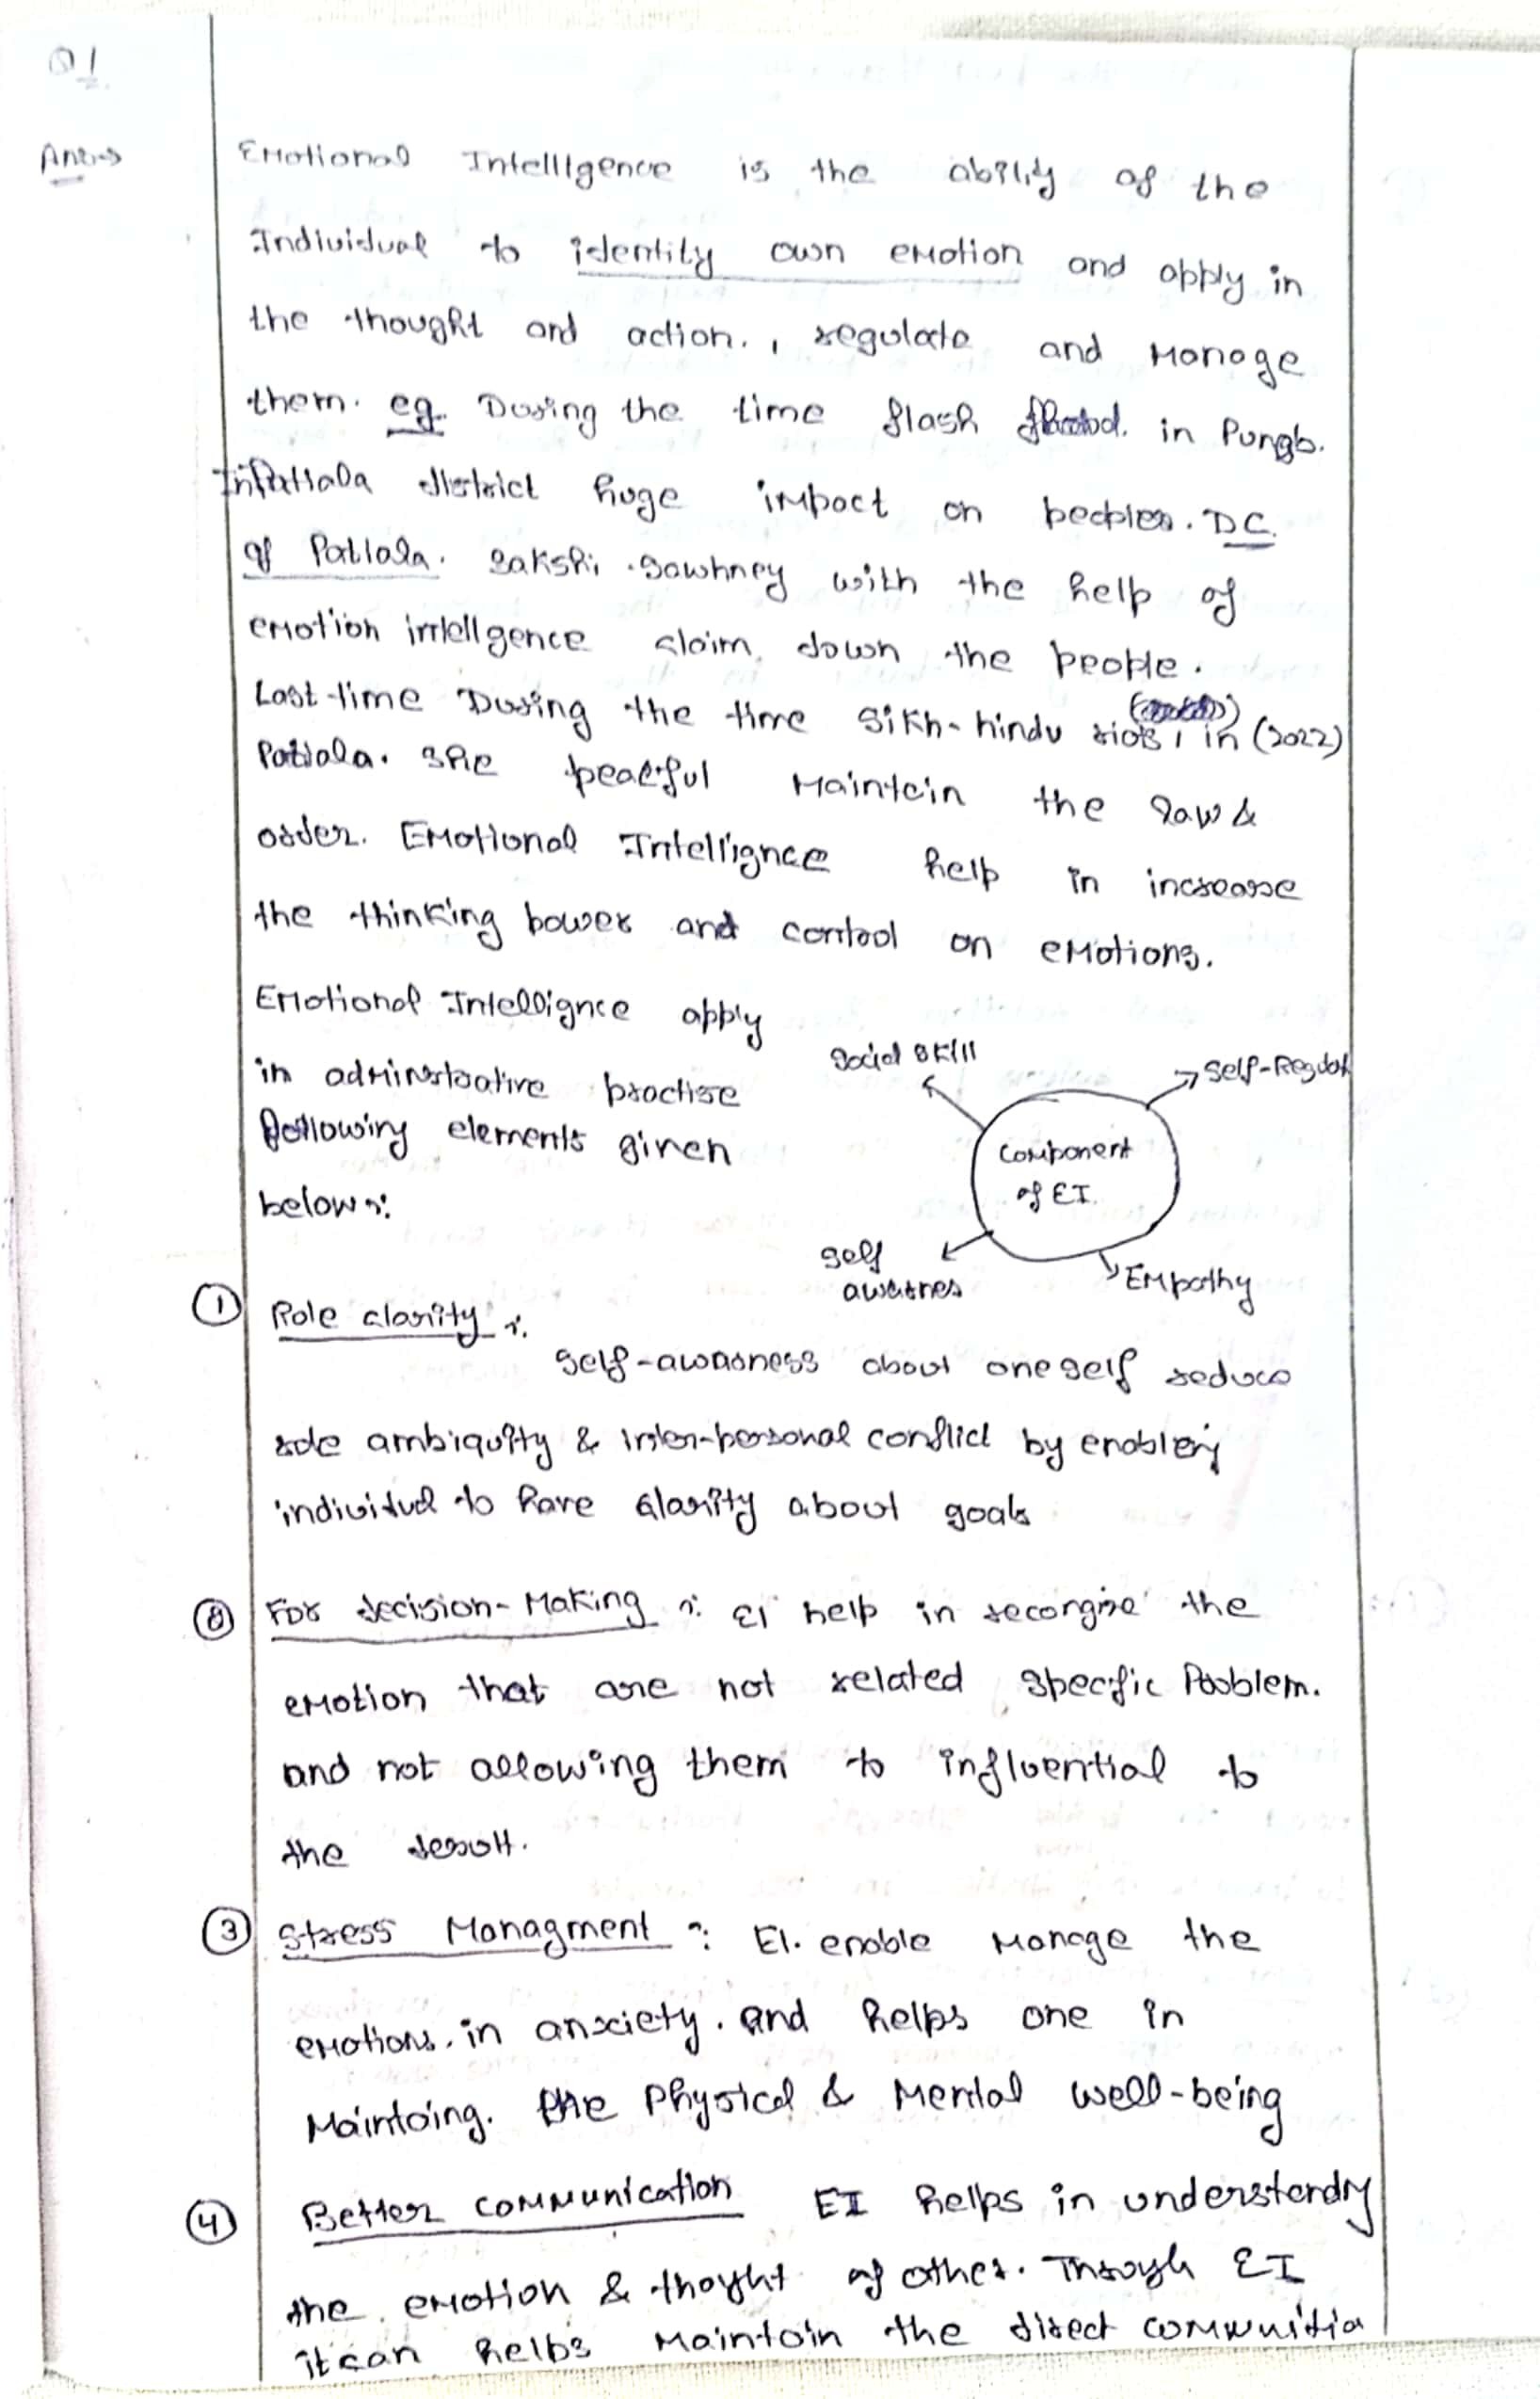 Q1
Ans→ Emotional Intelligence is the ability of the
Individual to identity own emotion and apply in
the thought and action. , regulate and manage
them. eg. During the time flash in Punjb.
In Patiala district huge impact on peoples. DC.
of Patiala. Sakshi Sawhney with the help of
emotion intellgence claim down the people.
Last time During the time Sikh-hindu riots, in (2022)
Patiala. She peaceful maintain the law &
order. Emotional Intelligence help in increase
the thinking power and control on emotions.
Emotional Intelligence apply
in administrative practise
following elements given
below:
Social Skill
Self-Regulat
Component
of EI.
Self
awarnes
Empathy
① Role clarity :
Self-awarness about oneself reduce
role ambiquity & inter-personal conflict by enabling
individual to have clarity about goals
② For decision-Making : EI help in recorgnise the
emotion that are not related specific Problem.
and not allowing them to influential to
the result.
③ Stress Managment : EI. enable manage the
emotions. in anxciety. and helps one in
Maintaing. the Physical & Mental well-being
④ Better communication EI helps in understanding
the emotion & thoght of other. Through EI
it can helps maintain the direct